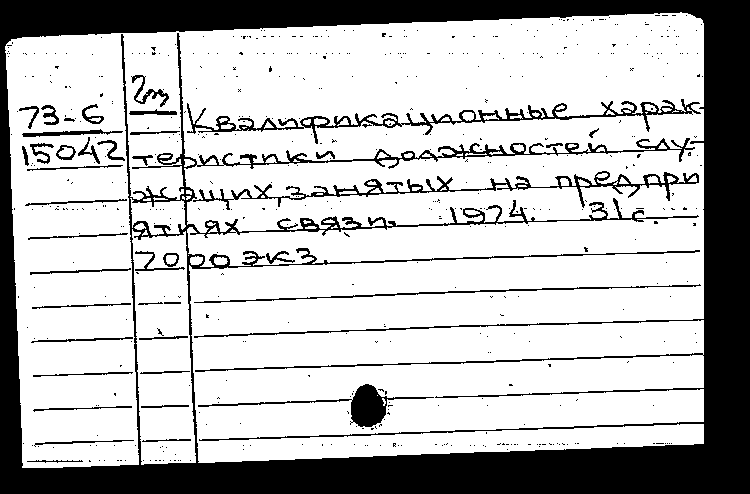 73-6
15042
Квалификационные харак-
теристики должностей слу-
жащих, занятых на предпри
ятиях связи. 1974. 31 с.
7000 экз.